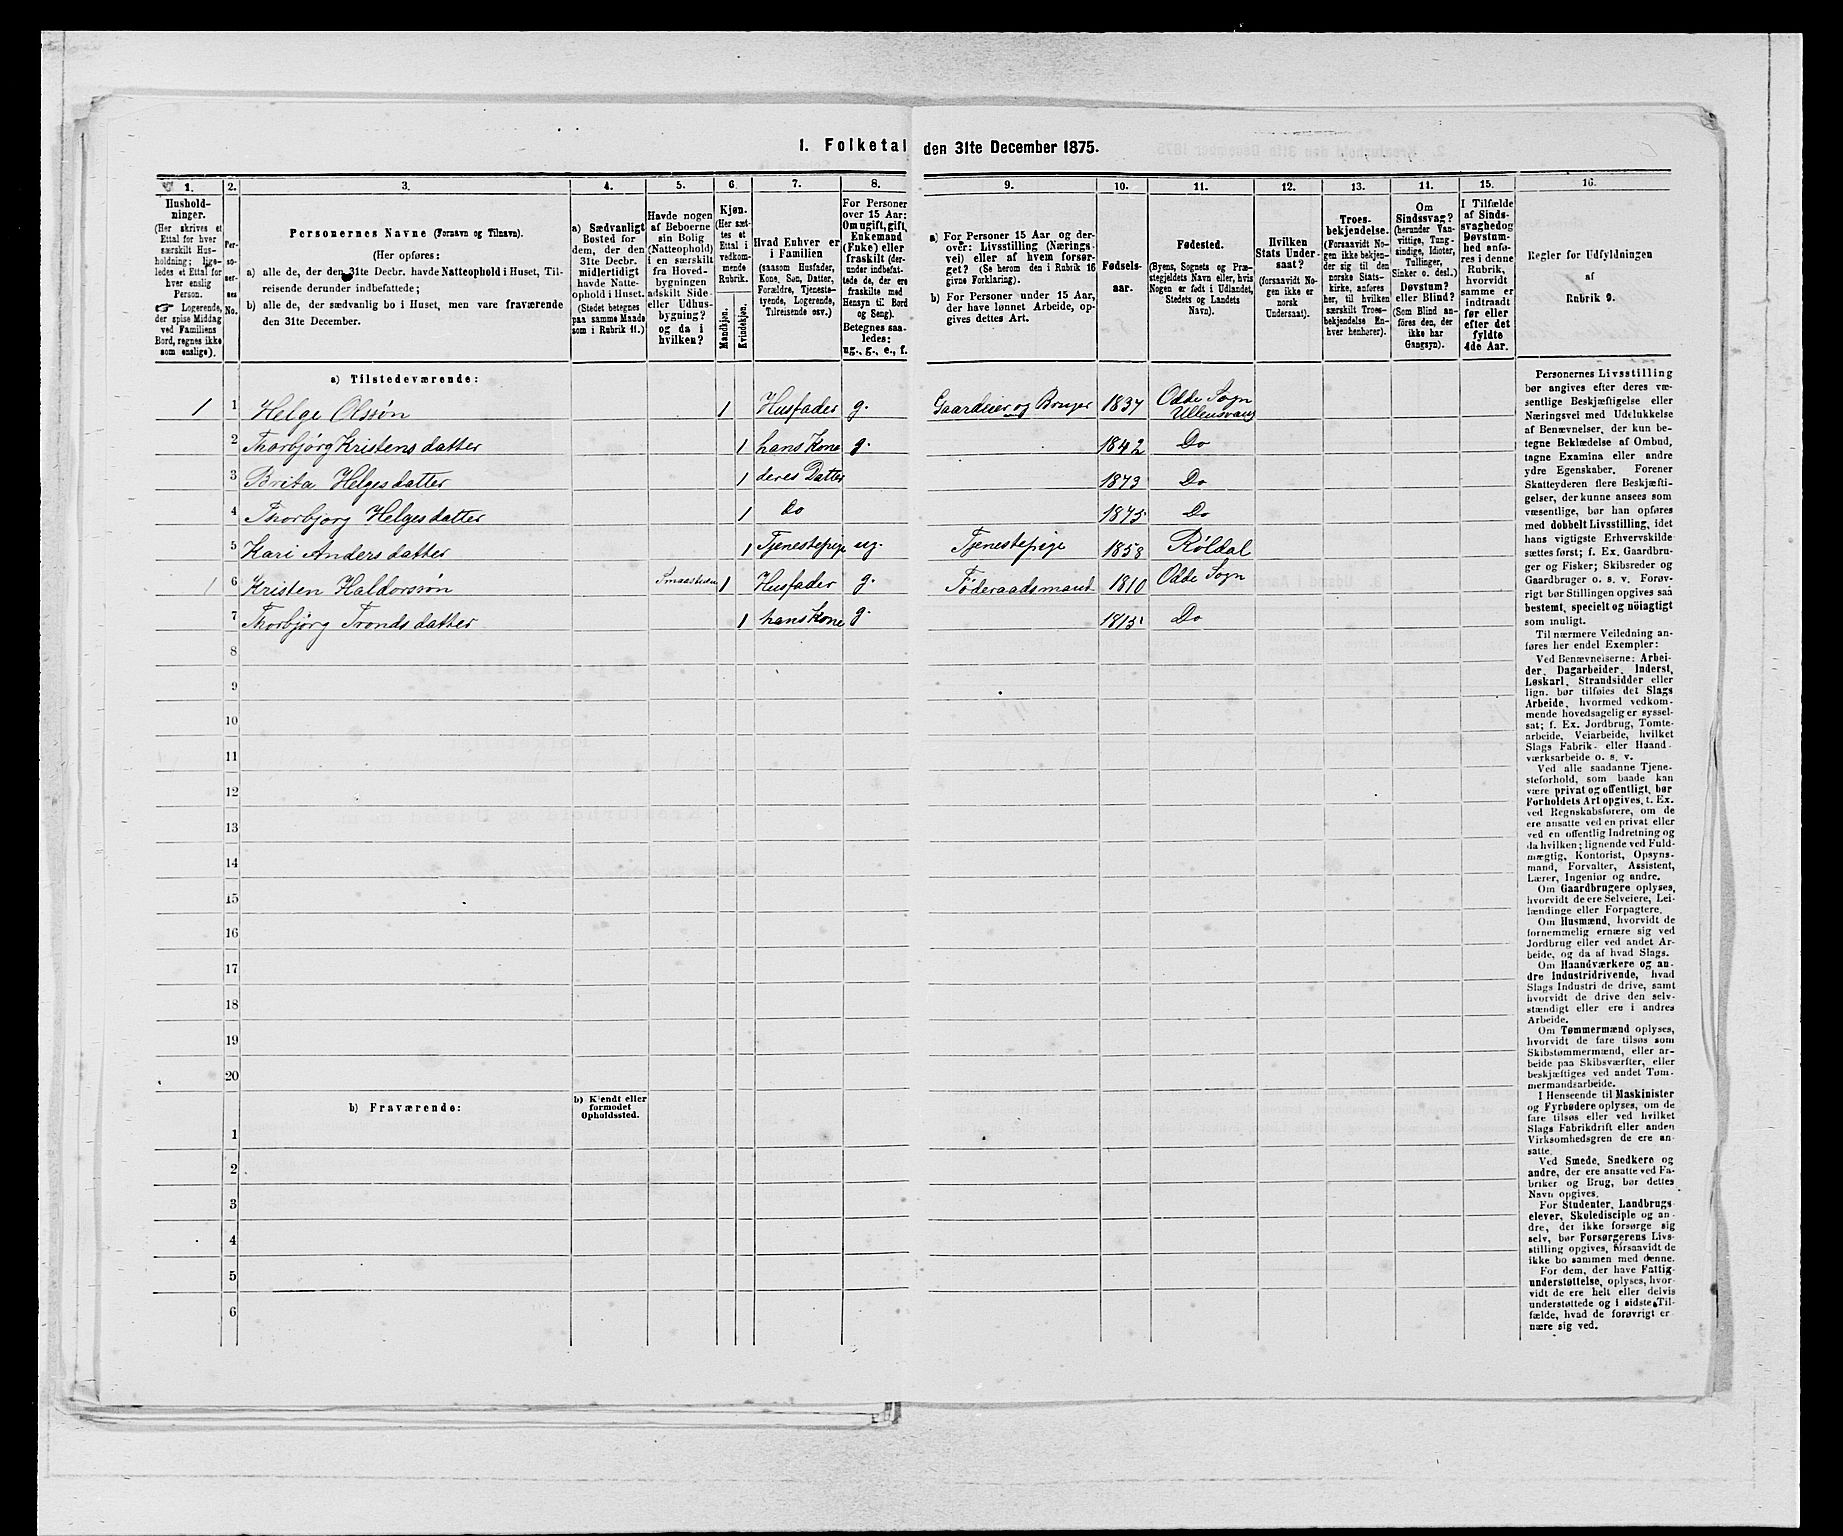 1. Folketal den 31te December 1875.
1. 2. 3. 4. 5. 6. 7. 8. 9. 10. 11. 12. 13. 14. 15. 16.
Hushold-
ninger.
(Her skrives et
Ettal for hver
særskilt Hus-
holdning; lige-
ledes et Ettal for
hver enslig
Person.
☞ Logerende,
der spise Middag
ved Familiens
Bord, regnes ikke
som enslige).
Per-
so-
ner-
nes
No.
Personernes Navne (Fornavn og Tilnavn).
(Her opføres:
a) alle de, der den 31te Decbr. havde Natteophold i Huset, Til-
reisende derunder indbefattede;
b) alle de, der sædvanlig bo i Huset, men vare fraværende
den 31te December.
a) Sædvanligt
Bosted for
dem, der den
31te Decbr.
midlertidigt
havde Natte-
ophold i Huset.
(Stedet betegnes
paa samme Maade
som i Rubrik 11.)
Havde nogen
af Beboerne
sin Bolig
(Natteophold)
i en særskilt
fra Hoved-
bygningen
adskilt Side-
eller Udhus-
bygning?
og da i
hvilken?
Kjøn.
(Her sæt-
tes et
Ettal i
vedkom-
mende
Rubrik.
Mandkjøn.
Kvindekjøn.
Hvad Enhver er
i Familien
(saasom Husfader,
Kone, Søn, Datter,
Forældre, Tjeneste-
tyende, Logerende,
Tilreisende osv.)
For Personer
over 15 Aar:
Om ugift, gift,
Enkemand
(Enke) eller
fraskilt (der-
under indbefat-
tede de, der ere
fraskilte med
Hensyn til Bord
og Seng).
Betegnes saa-
ledes:
ug., g., e., f.
a) For Personer 15 Aar og der-
over: Livsstilling (Nærings-
vei) eller af hvem forsør-
get? (Se herom den i Rubrik 16
givne Forklaring).
b) For Personer under 15 Aar,
der have lønnet Arbeide, op-
gives dettes Art.
Fødsels-
aar.
Fødested.
(Byens, Sognets og Præ-
stegjeldets Navn eller, hvis
Nogen er født i Udlandet,
Stedets og Landets
Navn).
Hvilken
Stats Under-
saat?
(forsaavidt No-
gen ikke er
norsk
Undersaat).
Troes-
bekjendelse.
(Forsaavidt No-
gen ikke bekjen-
der sig til den
norske Stats-
kirke, anføres
her, til hvilken
særskilt Troes-
bekjendelse En-
hver henhører).
Om
Sindssvag?
(herunder Van-
vittige, Tung-
sindige, Idioter,
Tullinger,
Sinker o. desl.)
Døvstum?
eller Blind?
(Som Blind an-
føres den, der
ikke har
Gangsyn).
I Tilfælde
af Sinds-
svaghed og
Døvstum-
hed anfø-
res i denne
Rubrik,
hvorvidt
samme er
indtraadt
før eller
efter det
fyldte
4de Aar.
Regler for Udfyldningen
af
Rubrik 9.
a) Tilstedeværende:
1 1 Helge Olssøn 1 Husfader g. Gaardeier og Bruger 1837 Odde Sogn
Ullensvang
2 Thorbjørg Kristensdatter 1 hans Kone g. 1842 Do
3 Brita Helgesdatter 1 deres Datter 1873 Do
4 Thorbjørg Helgesdatter 1 Do 1875 Do
5 Kari Andersdatter 1 Tjenestepige ug. Tjenestepige 1858 Røldal
1 6 Kristen Haldorsøn 1 Husfader g. Føderaadsmand 1810 Odde Sogn
7 Thorbjørg Trondsdatter 1 hans Kone g. 1815 Do
8
9
10
11
12
13
14
15
16
17
18
19
20
b) Fraværende:
b) Kjendt eller
formodet
Opholdssted.
1
2
3
4
5
6
Personernes Livsstilling
bør angives efter deres væ-
sentlige Beskjæftigelse eller
Næringsvei med Udelukkelse
af Benævnelser, der kun be-
tegne Beklædelse af Ombud,
tagne Examina eller andre
ydre Egenskaber. Forener
Skatteyderen flere Beskjæfti-
gelser, der kunne ansees som
væsentlige, bør han opføres
med dobbelt Livsstilling, idet
hans vigtigste Erhvervskilde
sættes først; f. Ex. Gaardbru-
ger og Fisker; Skibsreder og
Gaardbruger o. s. v. Forøv-
rigt bør Stillingen opgives saa
bestemt, specielt og nöiagtigt
som muligt.
Til nærmere Veiledning an-
føres her endel Exempler:
Ved Benævnelserne: Arbei-
der, Dagarbeider, Inderst,
Løskarl, Strandsidder eller
lign. bør tilføies det Slags
Arbeide, hvormed vedkom-
mende hovedsagelig er syssel-
sat; f. Ex. Jordbrug, Tomte-
arbeide, Veiarbeide, hvilket
Slags Fabrik- eller Haand-
værksarbeide o. s. v.
Ved alle saadanne Tjene-
steforhold, som baade kan
være privat og offentligt, bør
Forholdets Art opgives, t. Ex.
ved Regnskabsførere, om de
ere ansatte ved en privat eller
ved en offentlig Indretning og
da hvilken; lignende ved Fuld-
mægtig, Kontorist, Opsyns-
mand, Forvalter, Assistent,
Lærer, Ingeniør og andre.
Om Gaardbrugere oplyses,
hvorvidt de ere Selveiere, Lei-
lændinge eller Forpagtere.
Om Husmænd, hvorvidt de
fornemmelig ernære sig ved
Jordbrug eller ved andet Ar-
beide, og da af hvad Slags.
Om Haandværkere og an-
dre Industridrivende, hvad
Slags Industri de drive, samt
hvorvidt de drive den selv-
stændigt eller ere i andres
Arbeide.
Om Tømmermænd oplyses,
hvorvidt de fare tilsøs som
Skibstømmermænd, eller ar-
beide paa Skibsværfter, eller
beskjæftiges ved andet Tøm-
mermandsarbeide.
I Henseende til Maskinister
og Fyrbødere oplyses, om de
fare tilsøs eller ved hvilket
Slags Fabrikdrift eller anden
Virksomhedsgren de ere an-
satte.
Ved Smede, Snedkere og
andre, der ere ansatte ved Fa-
briker og Brug, bør dettes
Navn opgives.
For Studenter, Landbrugs-
elever, Skoledisciple og an-
dre, der ikke forsørge sig
selv, bør Forsørgerens Livs-
stilling opgives, forsaavidt de
ikke bo sammen med denne.
For dem, der have Fattig-
understøttelse, oplyses, hvor-
vidt de ere helt eller delvis
understøttede og i sidste Til-
fælde, hvad de forøvrigt er-
nære sig ved.